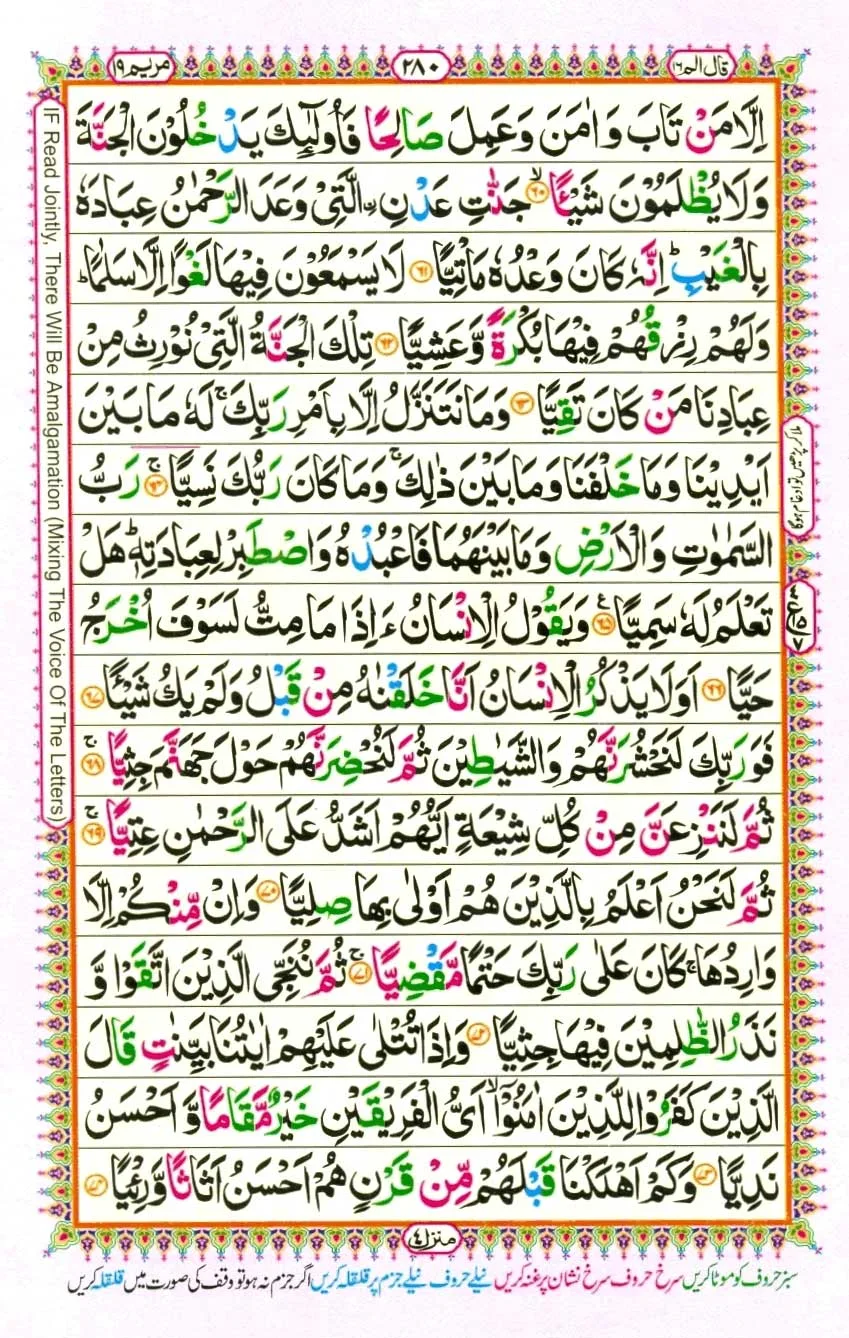 قال الم ١٦
٢٨٠
مريم ١٩
اِلَّا مَنْ تَابَ وَاٰمَنَ وَعَمِلَ صَالِحًا فَاُولٰٓئِكَ يَدْخُلُوْنَ الْجَنَّةَ
وَلَا يُظْلَمُوْنَ شَيْـًٔا ۙ‏﴿۶۰﴾ جَنّٰتِ عَدْنِ ۨالَّتِيْ وَعَدَ الرَّحْمٰنُ عِبَادَهٗ
بِالْغَيْبِ ؕ اِنَّهٗ كَانَ وَعْدُهٗ مَاْتِيًّا ﴿۶۱﴾ لَا يَسْمَعُوْنَ فِيْهَا لَغْوًا اِلَّا سَلٰمًا ؕ
وَلَهُمْ رِزْقُهُمْ فِيْهَا بُكْرَةً وَّعَشِيًّا ﴿۶۲﴾ تِلْكَ الْجَنَّةُ الَّتِيْ نُوْرِثُ مِنْ
عِبَادِنَا مَنْ كَانَ تَقِيًّا ﴿۶۳﴾ وَمَا نَتَنَزَّلُ اِلَّا بِاَمْرِ رَبِّكَ ۚ لَهٗ مَا بَيْنَ
اَيْدِيْنَا وَمَا خَلْفَنَا وَمَا بَيْنَ ذٰلِكَ ۚ وَمَا كَانَ رَبُّكَ نَسِيًّا ۚ﴿۶۴﴾ رَبُّ
السَّمٰوٰتِ وَالْاَرْضِ وَمَا بَيْنَهُمَا فَاعْبُدْهُ وَاصْطَبِرْ لِعِبَادَتِهٖ ؕ هَلْ
تَعْلَمُ لَهٗ سَمِيًّا ﴿۶۵﴾ ع وَيَقُوْلُ الْاِنْسَانُ ءَاِذَا مَا مِتُّ لَسَوْفَ اُخْرَجُ
حَيًّا ﴿۶۶﴾ اَوَلَا يَذْكُرُ الْاِنْسَانُ اَنَّا خَلَقْنٰهُ مِنْ قَبْلُ وَلَمْ يَكُ شَيْـًٔا ﴿۶۷﴾
فَوَرَبِّكَ لَنَحْشُرَنَّهُمْ وَالشَّيٰطِيْنَ ثُمَّ لَنُحْضِرَنَّهُمْ حَوْلَ جَهَنَّمَ جِثِيًّا ۚ﴿۶۸﴾
ثُمَّ لَنَنْزِعَنَّ مِنْ كُلِّ شِيْعَةٍ اَيُّهُمْ اَشَدُّ عَلَى الرَّحْمٰنِ عِتِيًّا ۚ﴿۶۹﴾
ثُمَّ لَنَحْنُ اَعْلَمُ بِالَّذِيْنَ هُمْ اَوْلٰى بِهَا صِلِيًّا ﴿۷۰﴾ وَاِنْ مِّنْكُمْ اِلَّا
وَارِدُهَا ۚ كَانَ عَلٰى رَبِّكَ حَتْمًا مَّقْضِيًّا ۚ﴿۷۱﴾ ثُمَّ نُنَجِّي الَّذِيْنَ اتَّقَوْا وَّ
نَذَرُ الظّٰلِمِيْنَ فِيْهَا جِثِيًّا ﴿۷۲﴾ وَاِذَا تُتْلٰى عَلَيْهِمْ اٰيٰتُنَا بَيِّنٰتٍ قَالَ
الَّذِيْنَ كَفَرُوْا لِلَّذِيْنَ اٰمَنُوْٓا ۙ اَيُّ الْفَرِيْقَيْنِ خَيْرٌ مَّقَامًا وَّاَحْسَنُ
نَدِيًّا ﴿۷۳﴾ وَكَمْ اَهْلَكْنَا قَبْلَهُمْ مِّنْ قَرْنٍ هُمْ اَحْسَنُ اَثَاثًا وَّرِءْيًا ﴿۷۴﴾
IF Read Jointly, There Will Be Amalgamation (Mixing The Voice Of The Letters)
منزل ۴
سبز حروف کو موٹا کریں سرخ حروف سرخ نشان پر غنہ کریں نیلے حروف نیلے جزم پر قلقلہ کریں اگر جزم نہ ہو تو وقف کی صورت میں قلقلہ کریں